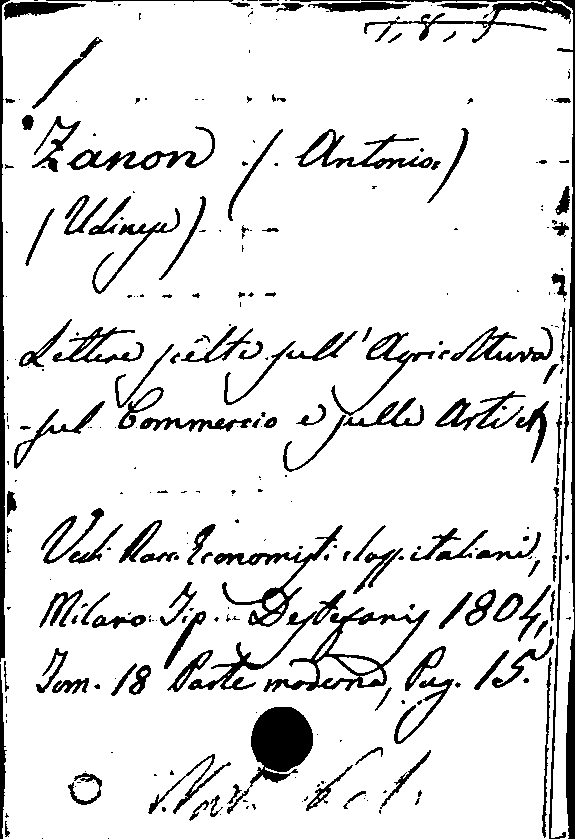 1, 8, 9
Zanon (Antonio)
(Udinese)
Lettere scelte sull'Agricoltura,
sul Commercio e sulle Arti
Vedi Racc. Economisti class. italiani,
Milano Tip. Destefanis 1804,
Tom. 18 Parte moderna, Pag. 15.